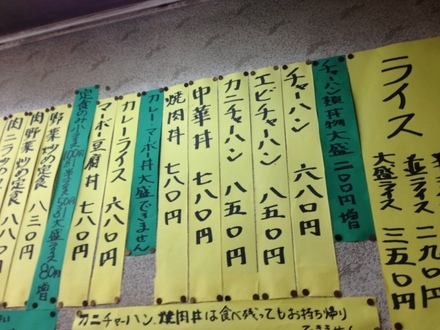 ライス
並ライス 二九〇円
大盛ライス 三五〇円
チャーハン類丼物大盛二〇〇円増
チャーハン 六八〇円
エビチャーハン 八五〇円
カニチャーハン 八五〇円
中華丼 七八〇円
焼肉丼 七八〇円
カレー、マーボー丼大盛できません
カレーライス 六八〇円
マーボー豆腐丼 七八〇円
定食の小ライス100円引半ライス50円引大盛ライス80円増
野菜炒め定食 八三〇円
肉野菜炒め定食 八八〇円
肉ニラ炒め定食
カニチャーハン、焼肉丼は食べ残ってもお持ち帰り